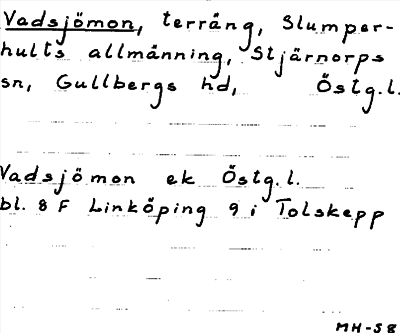 Vadsjömon, terräng, Slumper-
hults allmänning, Stjärnorps
sn, Gullbergs hd, Östg.l.
Vadsjömon ek Östg.l.
bl. 8 F Linköping 9 i Tolskepp
MH-58